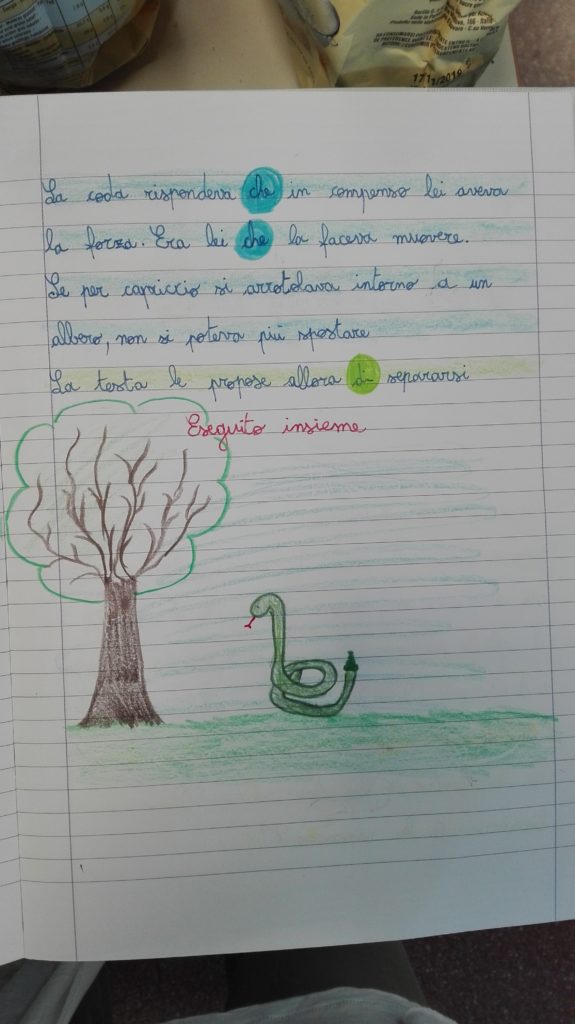 17/1/2019
La coda rispondeva che in compenso lei aveva
la forza. Era lei che la faceva muovere.
Se per capriccio si arrotolava intorno a un
albero, non si poteva più spostare
La testa le propose allora di separarsi
Eseguito insieme